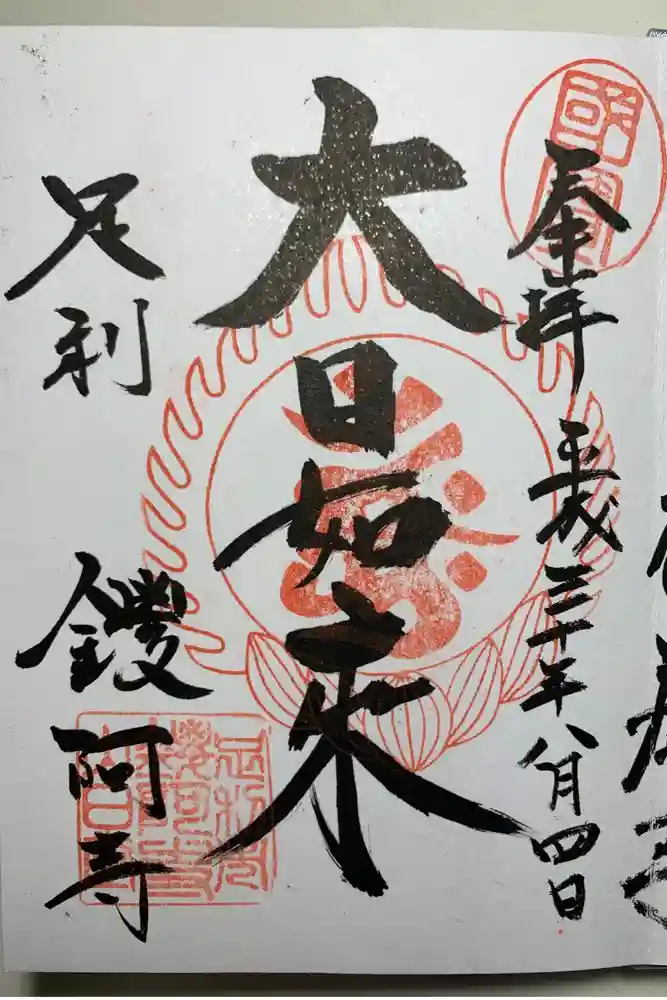 奉拝 平成三十年八月四日
大日如来
足利 鑁阿寺
國寳